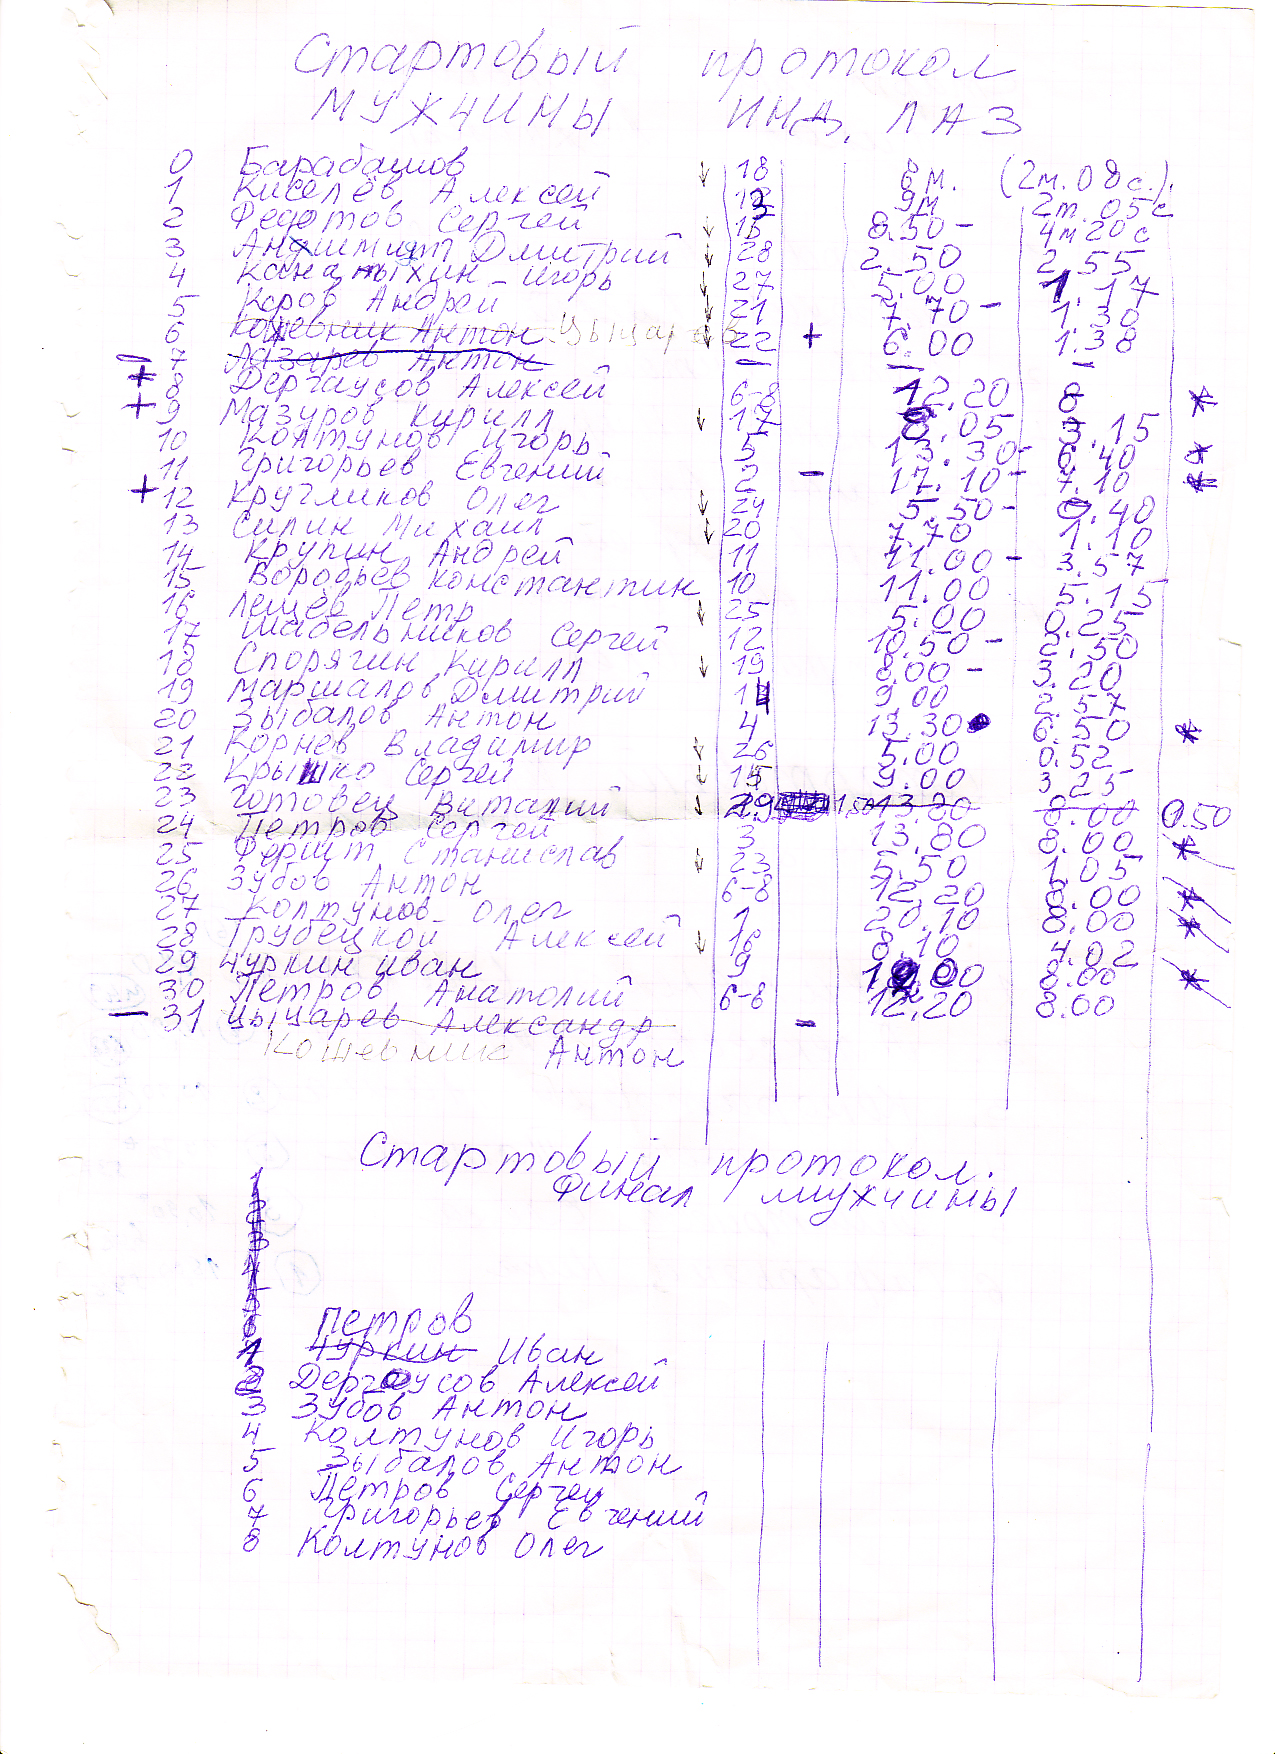 Стартовый протокол
МУЖЧИНЫ ИНД. ЛАЗ
0 Барабашов ↓ 18 8м. (2м.08с.).
1 Киселёв Алексей 9м 2м.05с
2 Федотов Сергей ↓ 15 8.50- 4м20с
3 Дмитрий ↓ 28 2.50 2.55
4 Игорь ↓ 27 5.00 1.17
5 Коров Андрей ↓ 21 7.70- 1.30
6 Кошевник Антон Цыцарев ↓ 22 + 6.00 1.38
7 Лазарев Антон - - -
++ 8 Дергаусов Алексей 6-8 12.20 8 *
+ 9 Мазуров Кирилл ↓ 17 .05 3.15
10 Колтунов Игорь 5 13.30- 6.40 *
11 Григорьев Евгений 2 - 17.10- 7.10 *
+ 12 Кругликов Олег ↓ 24 5.50- 0.40
13 Силин Михаил ↓ 20 7.70 1.10
14 Крупин Андрей 11 11.00- 3.57
15 Воробьёв Константин 10 11.00 5.15
16 Лещёв Петр ↓ 25 5.00 0.25
17 Шабельников Сергей 12 10.50- 2.50
18 Спорягин Кирилл ↓ 19 8.00- 3.20
19 Маршалов Дмитрий 14 9.00 2.57
20 Зыбалов Антон 4 13.30 6.50 *
21 Корнев Владимир ↓ 26 5.00 0.52
22 Крышко Сергей ↓ 15 9.00 3.25
23 Готовец Виталий ↓ 29 13.20 0.00 0.50
24 Петров Сергей 3 13.80 8.00 *
25 Станислав ↓ 23 5.50 1.05
26 Зубов Антон 6-8 12.20 8.00 *
27 Колтунов Олег 1 20.10 8.00 *
28 Трубецкой Алексей ↓ 16 8.10 4.02
29 Чуркин Иван 9 8.00 *
30 Петров Анатолий 6-8 12.20 8.00
- 31 Цыцарев Александр -
Кошевник Антон
Стартовый протокол.
Финал мужчины
Петров
1 Чуркин Иван
2 Дергаусов Алексей
3 Зубов Антон
4 Колтунов Игорь
5 Зыбалов Антон
6 Петров Сергей
7 Григорьев Евгений
8 Колтунов Олег